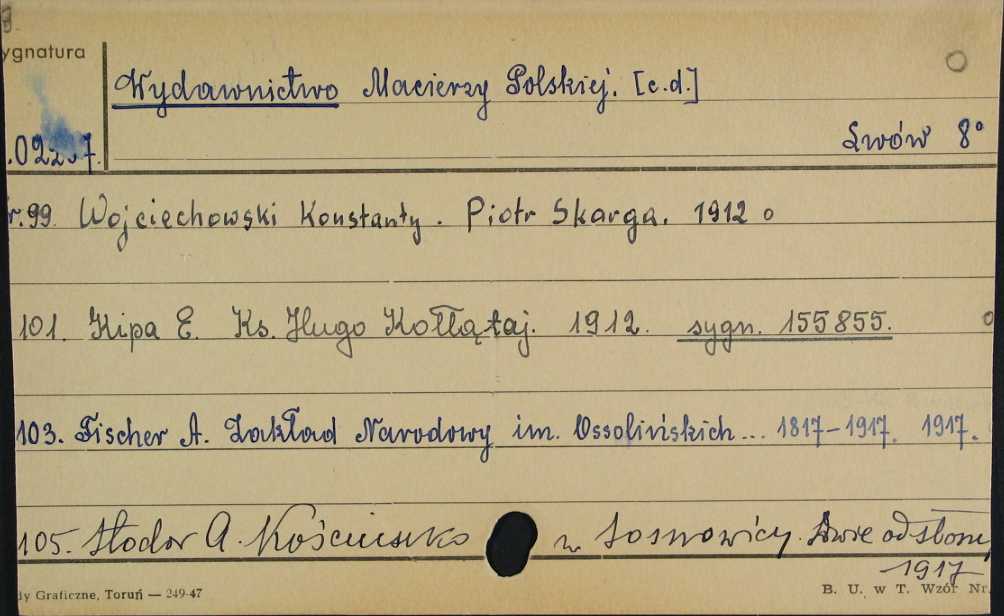 ygnatura
Wydawnictwo Macierzy Polskiej. [c.d.]
Lwów 8°
r. 99. Wojciechowski Konstanty. Piotr Skarga. 1912
101. Kipa E. Ks. Hugo Kołłątaj. 1912. sygn. 155855.
103. Fischer A. Zakład Narodowy im. Ossolińskich... 1817-1917. 1917.
105. Słodor A. Kościuszko w Sosnowicy. Dwie odsłony
1917
dy Graficzne, Toruń — 249-47
B. U. w T. Wzór Nr.